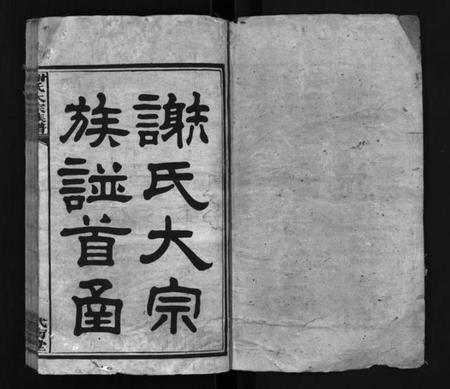 謝氏大宗
族譜首函